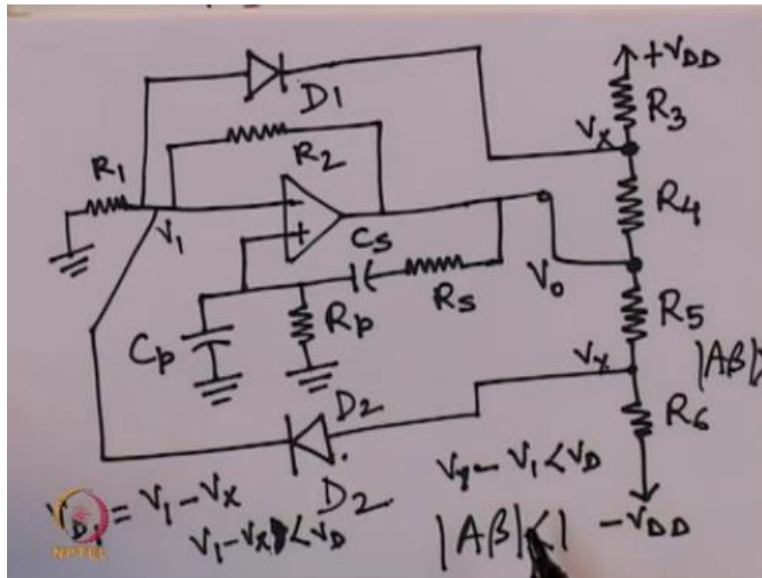 +VDD
R3
D1
Vx
R2
R1
R4
V1
−
+
Cs
Rs
Vo
R5
Cp
Rp
Vy
|Aβ|>
D2
R6
Vy - V1 < VD
VD1 = V1 - Vx
D2
V1 - Vx < VD
|Aβ| < 1
-VDD
NPTEL